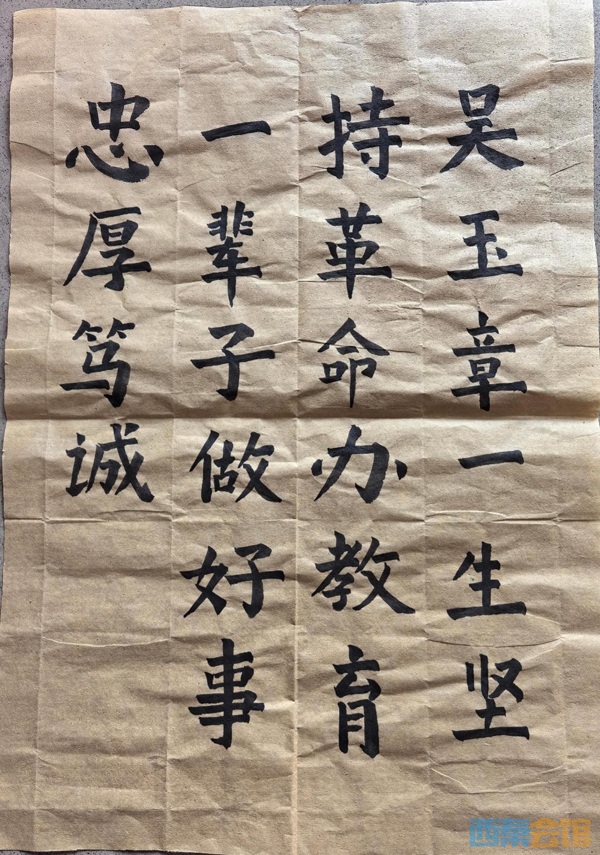 吴玉章一生坚
持革命办教育
一辈子做好事
忠厚笃诚
西蔡会馆